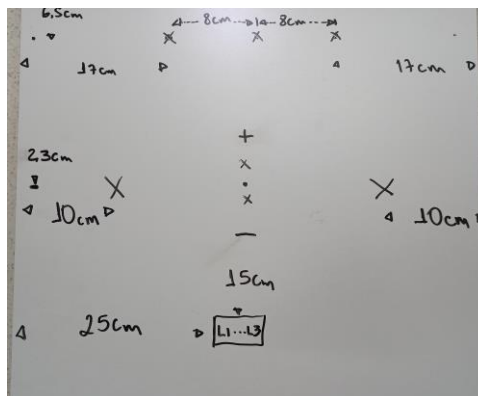 6,5cm 8cm 8cm
x x x
17cm 17cm
+
x
2,3cm
x . x
x
10cm 10cm
—
15cm
25cm L1...L3